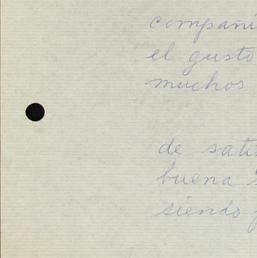 compañí
el gusto
muchos
de sati
buena
siendo